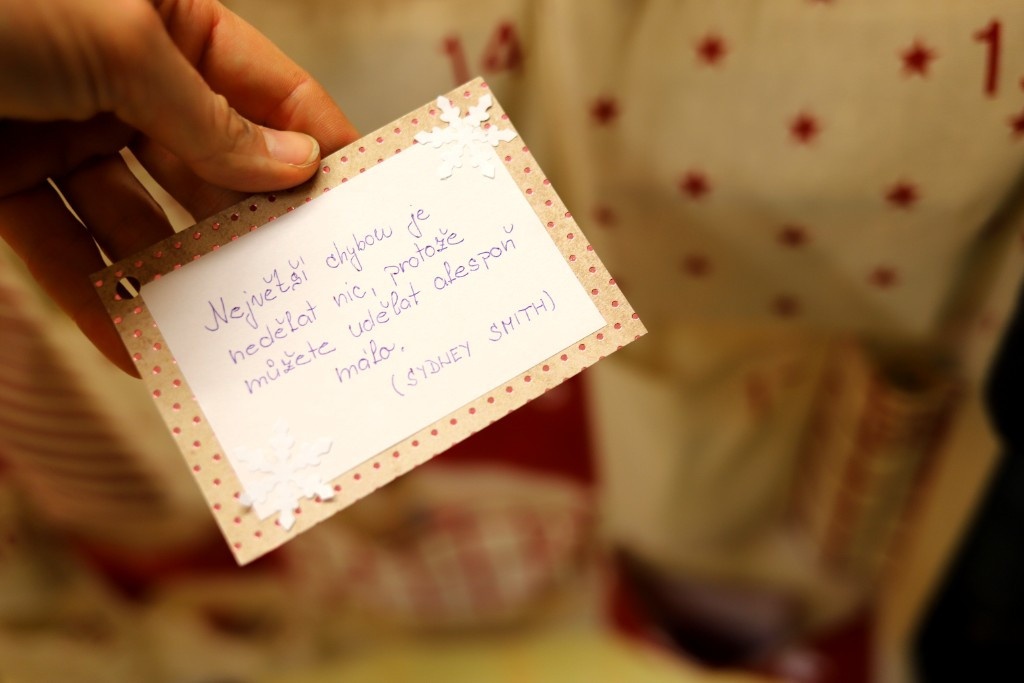 14
1
Největší chybou je
nedělat nic, protože
můžete udělat alespoň
málo.
(SYDNEY SMITH)